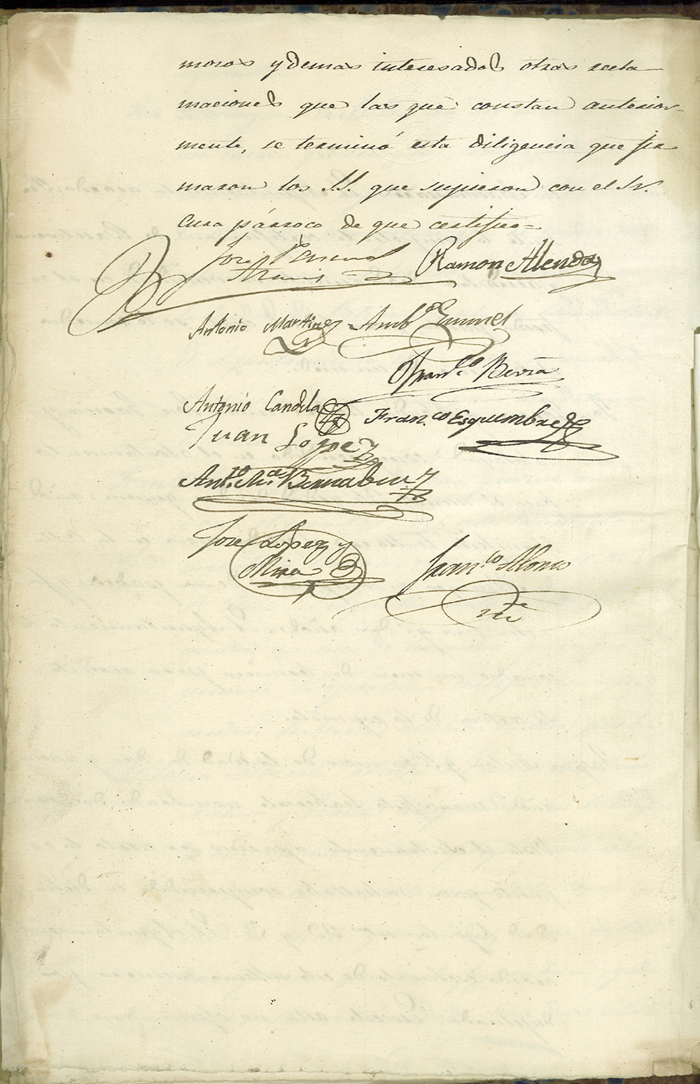 mosos y demas interesados otras recla
maciones que las que constan anterior-
mente, se terminó esta diligencia que fir
maron los SS. que supieron con el Sr.
Cura párroco de que certifico=
José
Ramon Alenda
Antonio Martinez
Amb.º
Fran.co Beviá
Antonio Candela
Fran.co Esquembre
Juan Lopez
Ant.º M.ª Bernabeu
José Lopez y
Mira
Fran.co Alonso